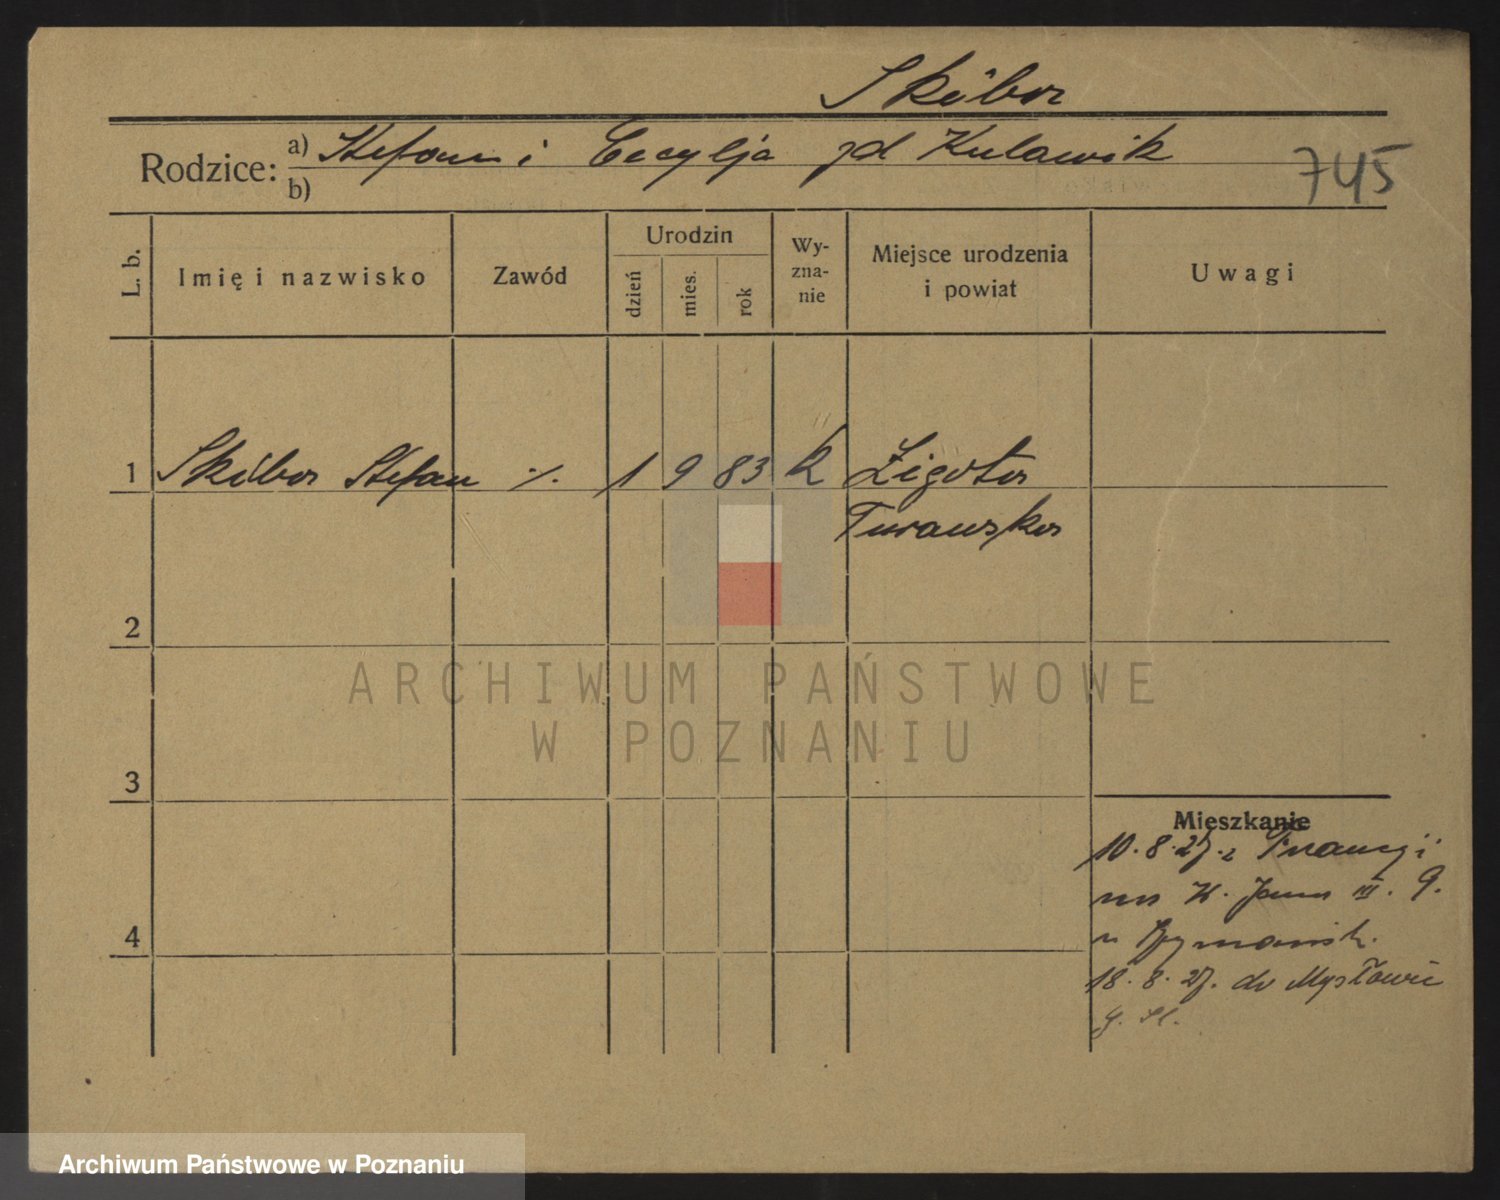 Skóbor
Rodzice: a) Stefan i Cecylja zd Kulawik
b)
745
L. b.
Imię i nazwisko
Zawód
Urodzin
dzień
mies.
rok
Wy-
zna-
nie
Miejsce urodzenia
i powiat
Uwagi
1 Skóbor Stefan ./. 1 9 83 k Żigota
Turawska
2
ARCHIWUM PAŃSTWOWE
W POZNANIU
3
Mieszkanie
10. 8. 27. z Francji
na K. Jana III. 9.
u
4
18. 8. 27. do Mysłowic
G. Śl.
Archiwum Państwowe w Poznaniu